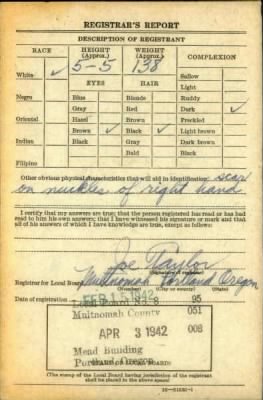 REGISTRAR'S REPORT
DESCRIPTION OF REGISTRANT
RACE HEIGHT (Approx.) WEIGHT (Approx.) COMPLEXION
White ✓ 5-5 138 Sallow
EYES HAIR Light
Negro Blue Blonde Ruddy
Gray Red Dark ✓
Oriental Hazel Brown Freckled
Brown ✓ Black ✓ Light brown
Indian Black Gray Dark brown
Bald Black
Filipino
Other obvious physical characteristics that will aid in identification: scar
on nuckles of right hand.
I certify that my answers are true; that the person registered has read or has had
read to him his own answers; that I have witnessed his signature or mark and that
all of his answers of which I have knowledge are true, except as follows:
Joe Taylor
(Signature of registrar)
Registrar for Local Board Multnomah Portland Oregon
(Number) (City or county) (State)
Date of registration FEB 16 1942
Local Board No. 8 95
Multnomah County 051
APR 3 1942 008
Mead Building
Portland, Oregon
(STAMP OF LOCAL BOARD)
(The stamp of the Local Board having jurisdiction of the registrant
shall be placed in the above space.)